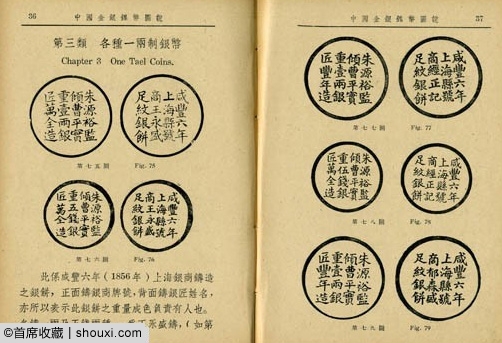 36 中國金銀鎳幣圖說
第三類 各種一兩制銀幣
Chapter 3 One Tael Coins.
朱源裕監
傾曹平實
重壹兩銀
匠萬全造
咸豐六年
上海縣號
商王永盛
足紋銀餅
第七五圖 Fig. 75
朱源裕監
傾曹平實
重五錢銀
匠萬全造
咸豐六年
上海縣號
商王永盛
足紋銀餅
第七六圖 Fig. 76
此係咸豐六年(1856年)上海銀商鑄造
之銀餅,正面鑄銀商牌號,背面鑄銀匠姓名,
亦所以表示此銀餅之重量成色負責有人也。
(如第
中國金銀鎳幣圖說 37
朱源裕監
傾曹平實
重壹兩銀
匠豐年造
咸豐六年
上海縣號
商經正記
足紋銀餅
第七七圖 Fig. 77
朱源裕監
傾曹平實
重伍錢銀
咸豐六年
上海縣號
商經正記
足紋銀餅
第七八圖 Fig. 78
朱源裕監
傾曹平實
重壹兩銀
匠豐年造
咸豐六年
上海縣號
商郁森盛
足紋銀餅
第七九圖 Fig. 79
@首席收藏 | shouxi.com